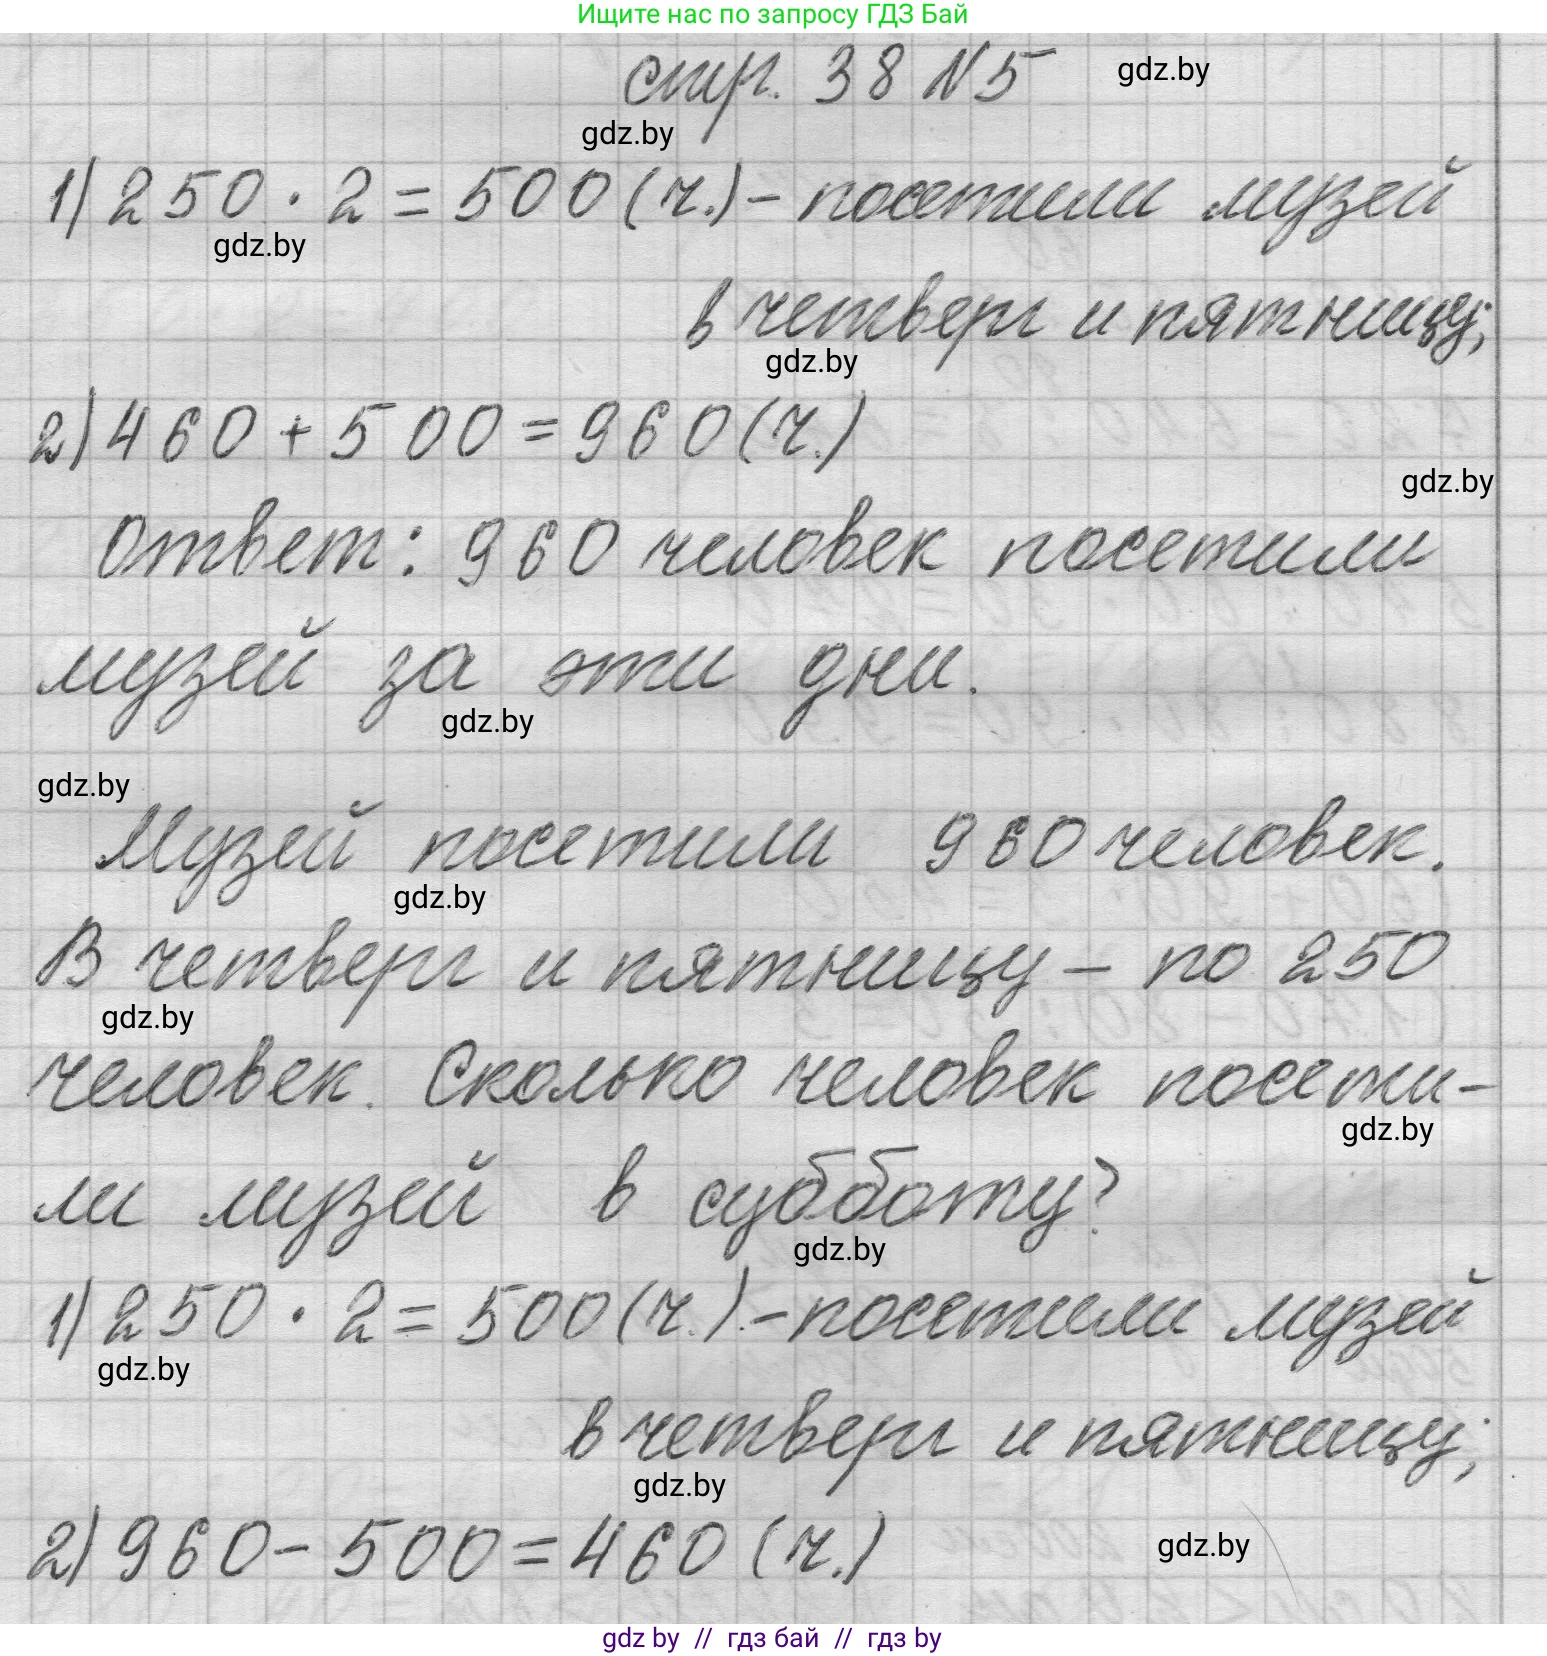 Ищите нас по запросу ГДЗ Бай
стр. 38 N5 gdz.by
gdz.by
1) 250 · 2 = 500 (ч.) – посетили музей
gdz.by
в четверг и пятницу;
gdz.by
2) 460 + 500 = 960 (ч.)
gdz.by
Ответ: 960 человек посетили
музей за эти дни.
gdz.by
gdz.by
Музей посетили 960 человек.
gdz.by
В четверг и пятницу – по 250
gdz.by
человек. Сколько человек посети-
gdz.by
ли музей в субботу?
gdz.by
1) 250 · 2 = 500 (ч.) – посетили музей
gdz.by
в четверг и пятницу;
gdz.by
2) 960 – 500 = 460 (ч.) gdz.by
gdz by // гдз бай // гдз by